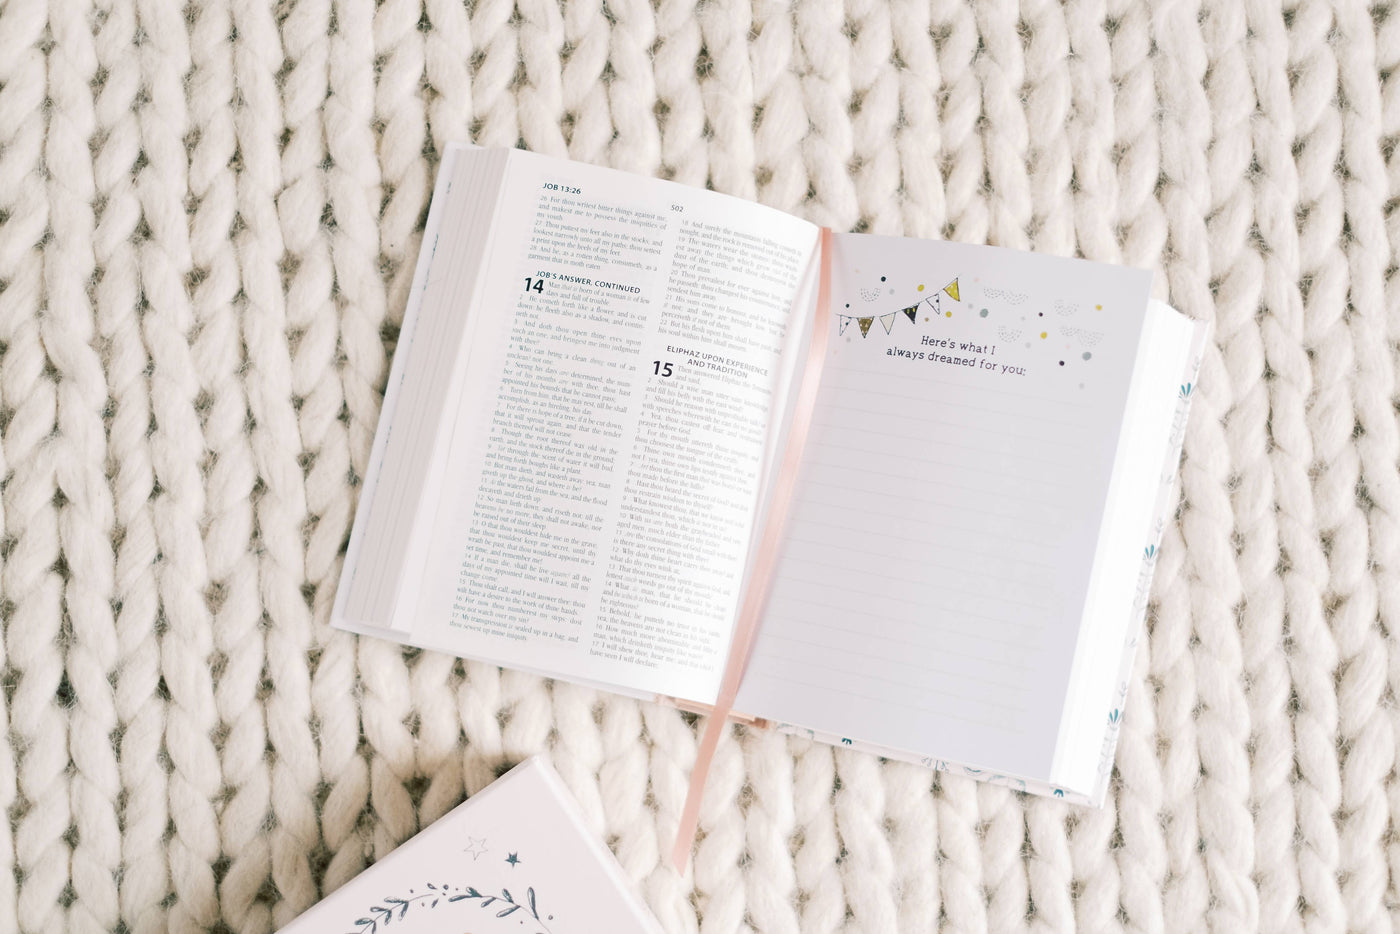 JOB 13:26
26 For thou writest bitter things against me,
and makest me to possess the iniquities of
my youth.
27 Thou puttest my feet also in the stocks, and
lookest narrowly unto all my paths; thou settest
a print upon the heels of my feet.
28 And he, as a rotten thing, consumeth, as a
garment that is moth eaten.
JOB'S ANSWER, CONTINUED
14 Man that is born of a woman is of few
days and full of trouble.
2 He cometh forth like a flower, and is cut
down: he fleeth also as a shadow, and contin-
ueth not.
3 And doth thou open thine eyes upon
such an one, and bringest me into judgment
with thee?
4 Who can bring a clean thing out of an
unclean? not one.
5 Seeing his days are determined, the num-
ber of his months are with thee, thou hast
appointed his bounds that he cannot pass;
6 Turn from him, that he may rest, till he shall
accomplish, as an hireling, his day.
7 For there is hope of a tree, if it be cut down,
that it will sprout again, and that the tender
branch thereof will not cease.
8 Though the root thereof wax old in the
earth, and the stock thereof die in the ground;
9 Yet through the scent of water it will bud,
and bring forth boughs like a plant.
10 But man dieth, and wasteth away: yea, man
giveth up the ghost, and where is he?
11 As the waters fail from the sea, and the flood
decayeth and drieth up:
12 So man lieth down, and riseth not: till the
heavens be no more, they shall not awake, nor
be raised out of their sleep.
13 O that thou wouldest hide me in the grave,
that thou wouldest keep me secret, until thy
wrath be past, that thou wouldest appoint me a
set time, and remember me!
14 If a man die, shall he live again? all the
days of my appointed time will I wait, till my
change come.
15 Thou shalt call, and I will answer thee: thou
wilt have a desire to the work of thine hands.
16 For now thou numberest my steps: dost
thou not watch over my sin?
17 My transgression is sealed up in a bag, and
thou sewest up mine iniquity.
502
18 And surely the mountains falling cometh to
nought, and the rock is removed out of his place.
19 The waters wear the stones: thou wash-
est away the things which grow out of the
dust of the earth; and thou destroyest the
hope of man.
20 Thou prevailest for ever against him, and
he passeth: thou changest his countenance, and
sendest him away.
21 His sons come to honour, and he knoweth it
not; and they are brought low, but he
perceiveth it not of them.
22 But his flesh upon him shall have pain, and
his soul within him shall mourn.
ELIPHAZ UPON EXPERIENCE
AND TRADITION
15 Then answered Eliphaz the Temanite,
and said,
2 Should a wise man utter vain knowledge,
and fill his belly with the east wind?
3 Should he reason with unprofitable talk? or
with speeches wherewith he can do no good?
4 Yea, thou castest off fear, and restrainest
prayer before God.
5 For thy mouth uttereth thine iniquity, and
thou choosest the tongue of the crafty.
6 Thine own mouth condemneth thee, and
not I: yea, thine own lips testify against thee.
7 Art thou the first man that was born? or wast
thou made before the hills?
8 Hast thou heard the secret of God? and dost
thou restrain wisdom to thyself?
9 What knowest thou, that we know not? what
understandest thou, which is not in us?
10 With us are both the grayheaded and very
aged men, much elder than thy father.
11 Are the consolations of God small with thee?
is there any secret thing with thee?
12 Why doth thine heart carry thee away? and
what do thy eyes wink at,
13 That thou turnest thy spirit against God, and
lettest such words go out of thy mouth?
14 What is man, that he should be clean?
and he which is born of a woman, that he should
be righteous?
15 Behold, he putteth no trust in his saints;
yea, the heavens are not clean in his sight.
16 How much more abominable and filthy is
man, which drinketh iniquity like water?
17 I will shew thee, hear me; and that which I
have seen I will declare;
Here's what I
always dreamed for you: